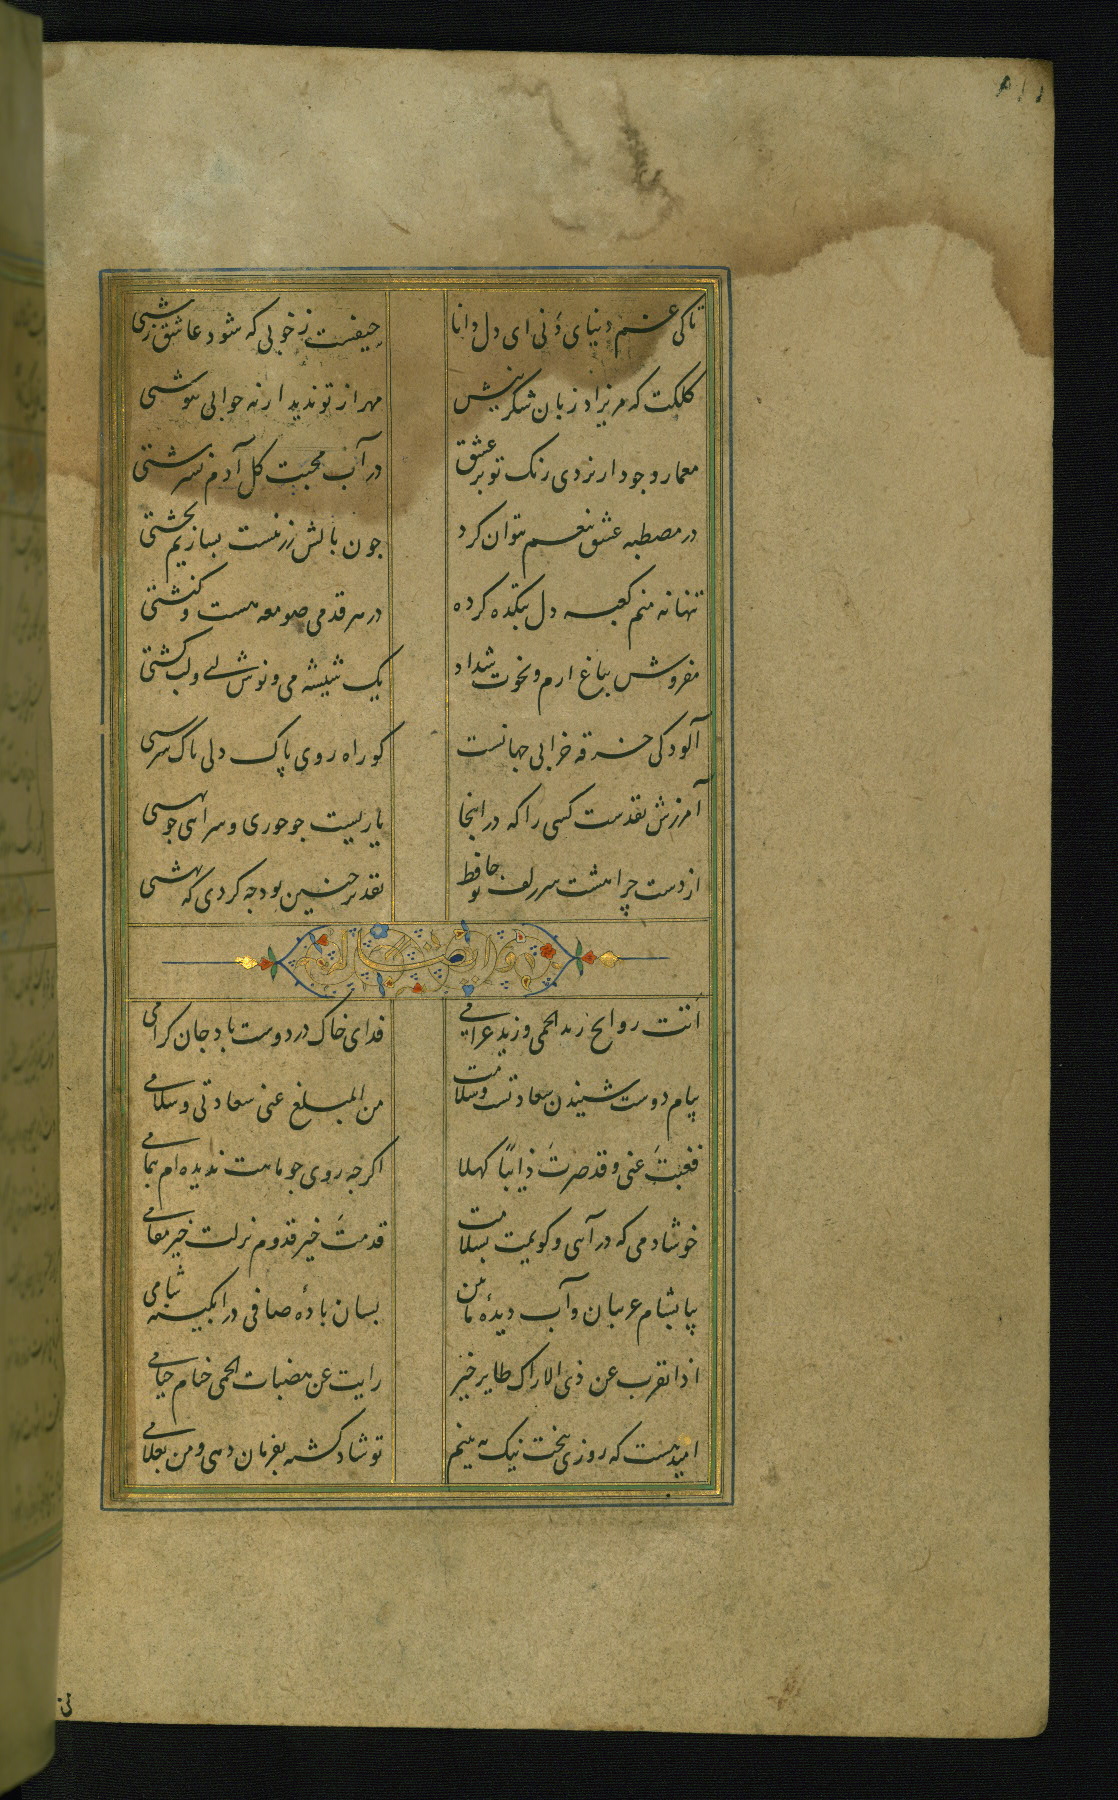 تا کی غم دنیای دنی ای دل دانا
حیفست ز خوبی که شود عاشق زشتی
کلکت که مریزاد زبان شکرینش
مهر از تو ندید ار نه جوابی بنوشتی
معمار وجود ار نزدی رنک تو بر عشق
در آب محبت کل آدم نسرشتی
در مصطبه عشق تنعم نتوان کرد
جون بالش زر نیست بسازیم بخشتی
تنها نه منم کعبه دل بتکده کرده
در هر قدمی صومعه هست و کنشتی
مفروش بباغ ارم و نخوت شداد
یک شیشه می و نوش لبی و لب کشتی
آلودکی خرقه خرابی جهانست
کو راه روی پاک دلی پاک سرشتی
آمرزش نقدست کسی را که در اینجا
یاریست جو حوری و سرایی جو بهشتی
از دست چرا هشت سر زلف تو حافظ
تقدیر جنین بود جه کردی که نهشتی
وایضا له
اتت روایح رند الحمی و زید غرامی
فدای خاک در دوست باد جان کرامی
پیام دوست شنیدن سعادتست و سلامت
من المبلغ عنی سعادتی و سلامی
فغبتَ عنی و قد صرتَ ذایبًا کهلال
اکرجه روی جو ماهت ندیده ام بتمامی
خوشا دمی که در آیی و کویمت بسلامت
قدمتَ خیر قدوم نزلت خیر مقامی
بیا بشام غریبان و آب دیده ما بین
بسان باده صافی در ابکینه شامی
اذا تقرب عن ذی الاراک طایر خیر
رایت عن هضبات الحمی خیام خیامی
امید هست که روزی ببخت نیک به بینم
تو شاد کشته بفرمان دهی و من بغلامی